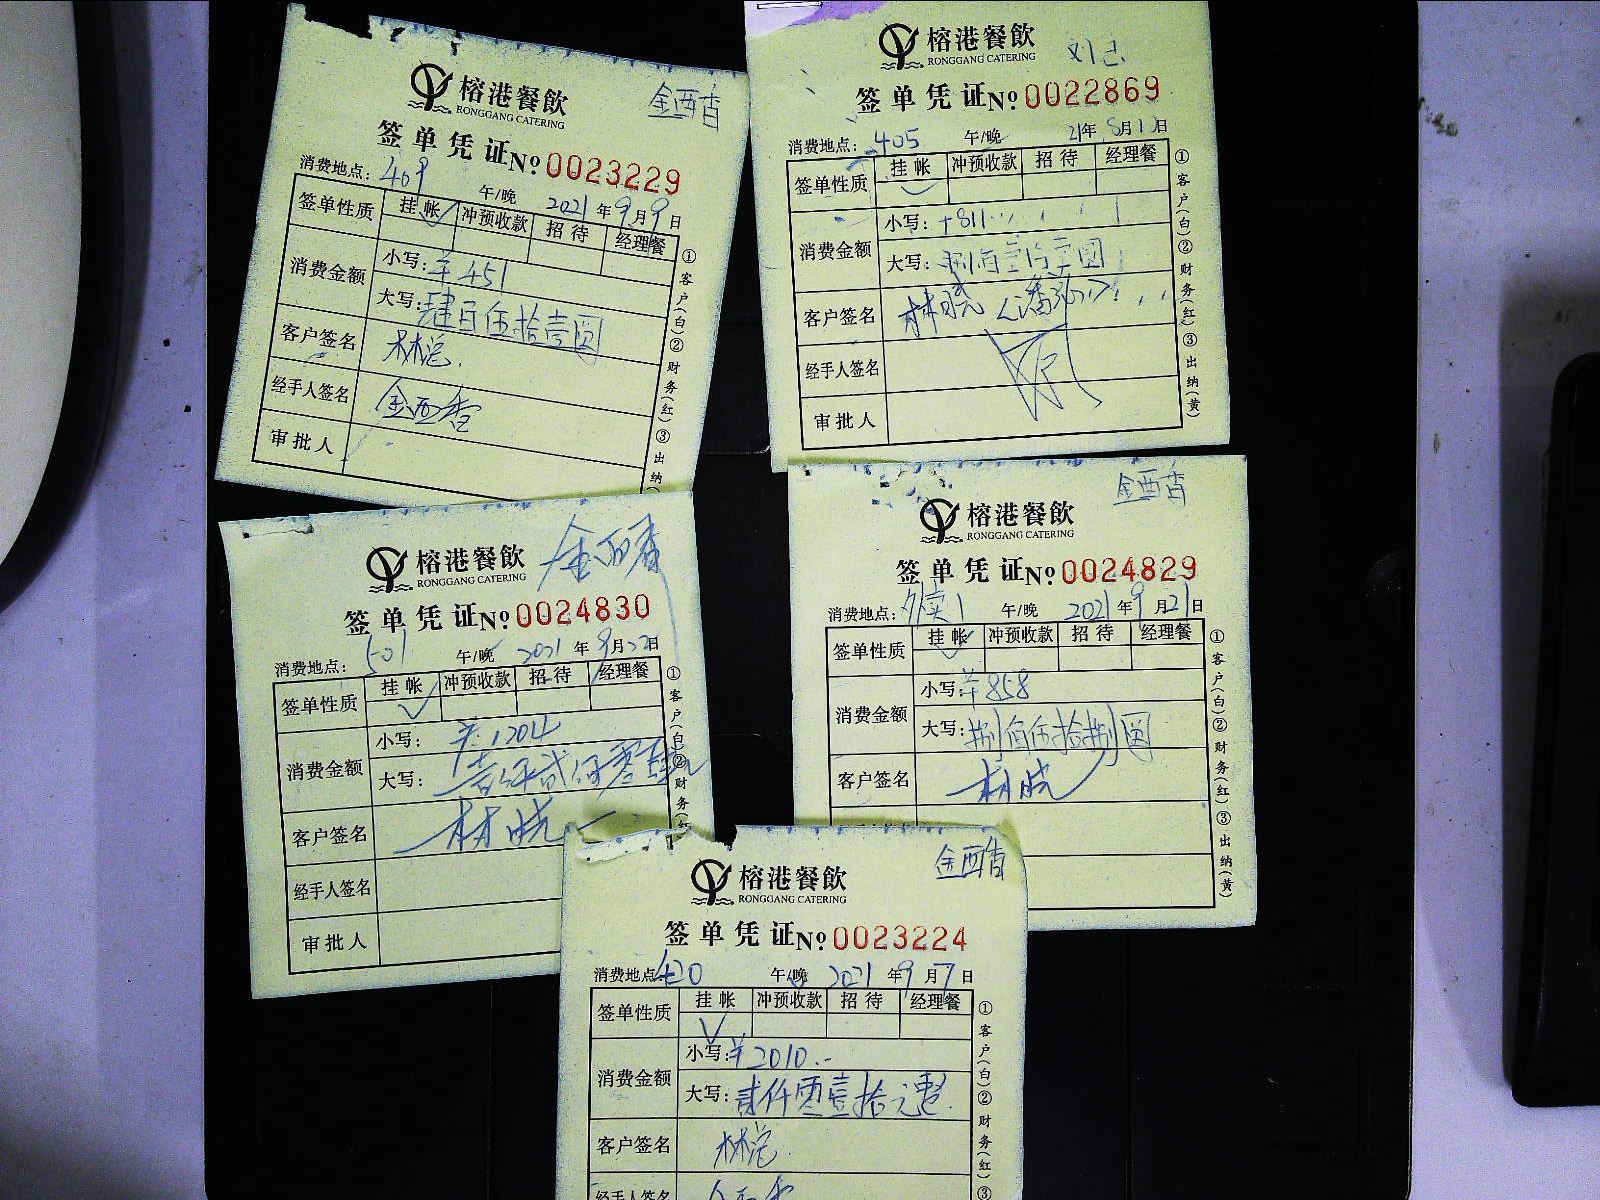 榕港餐飲
RONGGANG CATERING
金酉香
签单凭证No 0023229
消费地点: 409 午/晚 2021年9月9日
签单性质 挂帐 冲预收款 招待 经理餐
消费金额 小写: ¥451
大写: 肆百伍拾壹圆
客户签名 林总.
经手人签名 金酉香
审批人
①客户(白)②财务(红)③出纳
榕港餐飲
RONGGANG CATERING
签单凭证No 0022869
消费地点: 405 午/晚 21年8月1日
签单性质 挂帐 冲预收款 招待 经理餐
消费金额 小写: ¥811
大写: 捌佰壹拾壹圆
客户签名 林晓
经手人签名
审批人
①客户(白)②财务(红)③出纳(黄)
榕港餐飲
RONGGANG CATERING
金酉香
签单凭证No 0024830
消费地点: 501 午/晚 2021年9月22日
签单性质 挂帐 冲预收款 招待 经理餐
消费金额 小写: ¥1204
大写: 壹仟贰佰零肆元
客户签名 林晓
经手人签名
审批人
①客户(白)②财务(红
榕港餐飲
RONGGANG CATERING
金酉香
签单凭证No 0024829
消费地点: 外卖1 午/晚 2021年9月21日
签单性质 挂帐 冲预收款 招待 经理餐
消费金额 小写: ¥858
大写: 捌佰伍拾捌圆
客户签名 林晓
①客户(白)②财务(红)③出纳(黄)
榕港餐飲
RONGGANG CATERING
金酉香
签单凭证No 0023224
消费地点: 420 午/晚 2021年9月7日
签单性质 挂帐 冲预收款 招待 经理餐
消费金额 小写: ¥2010.-
大写: 贰仟零壹拾元整
客户签名 林总.
经手人签名 金酉香
①客户(白)②财务(红)③